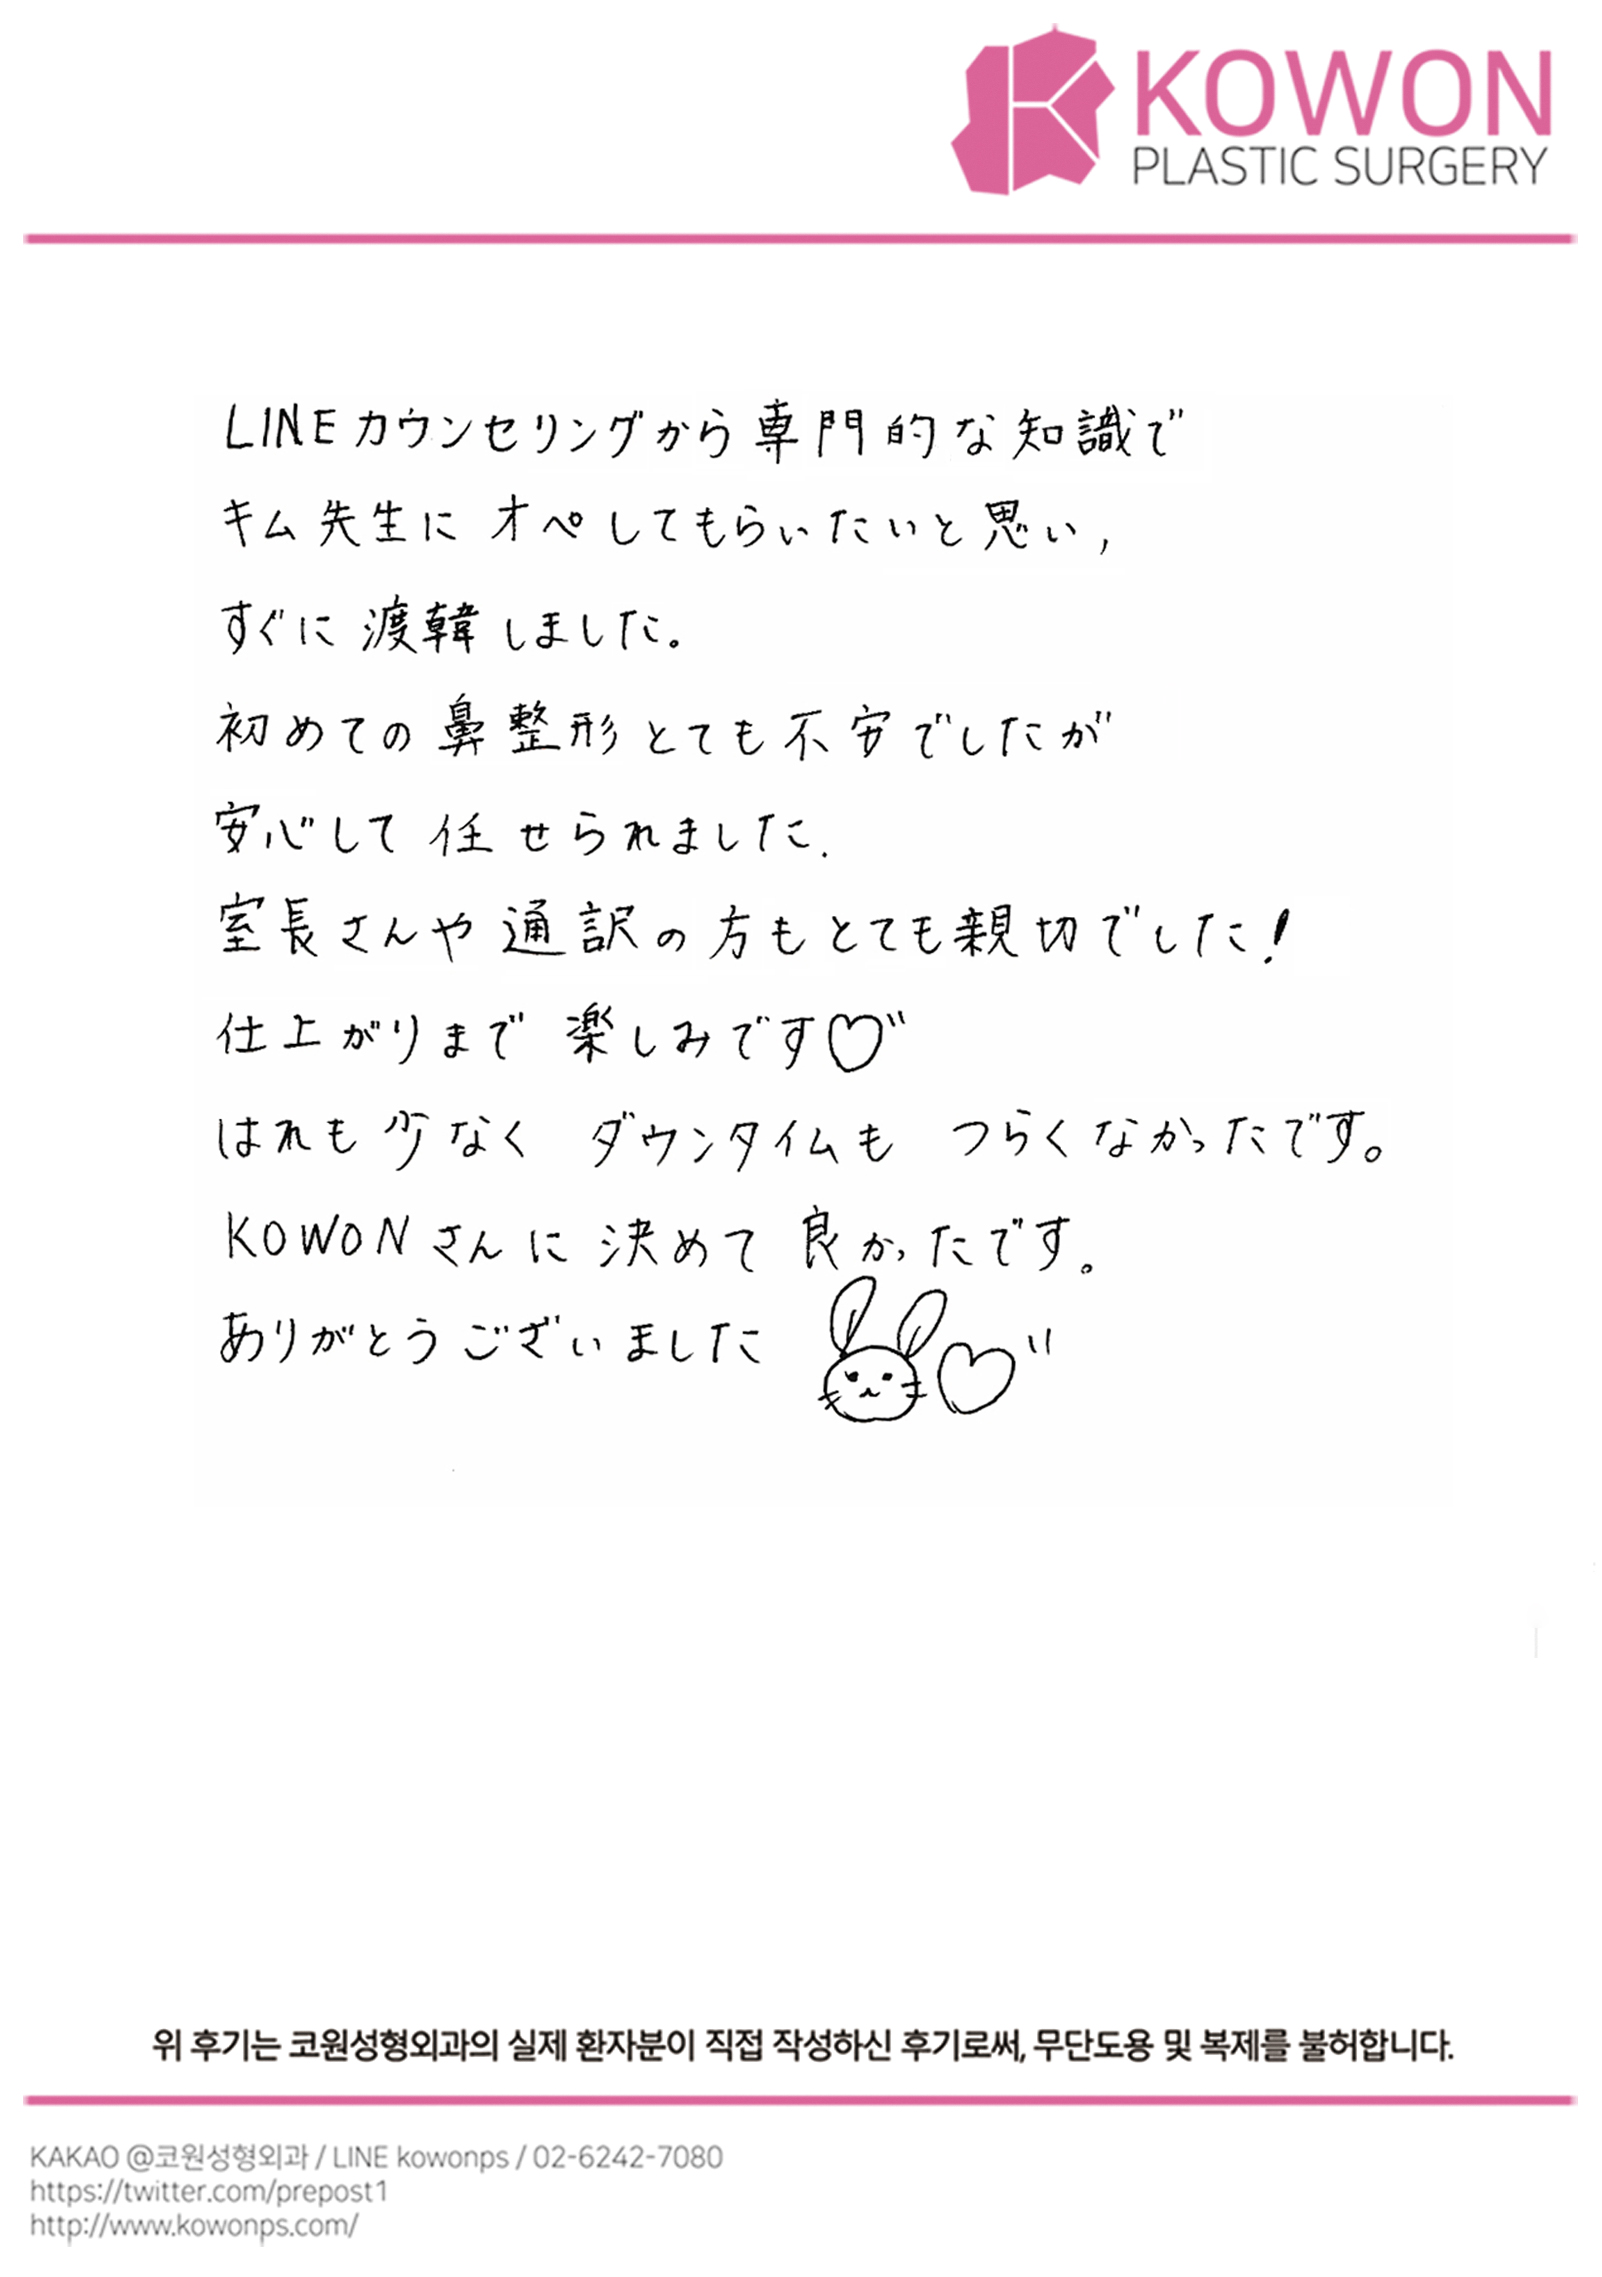 KOWON
PLASTIC SURGERY
LINEカウンセリングから専門的な知識で
キム先生にオペしてもらいたいと思い,
すぐに渡韓しました。
初めての鼻整形とても不安でしたが
安心して任せられました.
室長さんや通訳の方もとても親切でした!
仕上がりまで楽しみです♡
はれも少なく ダウンタイムも つらくなかったです。
KOWONさんに決めて良かったです。
ありがとうございました
위 후기는 코원성형외과의 실제 환자분이 직접 작성하신 후기로써, 무단도용 및 복제를 불허합니다.
KAKAO @코원성형외과 / LINE kowonps / 02-6242-7080
https://twitter.com/prepost1
http://www.kowonps.com/